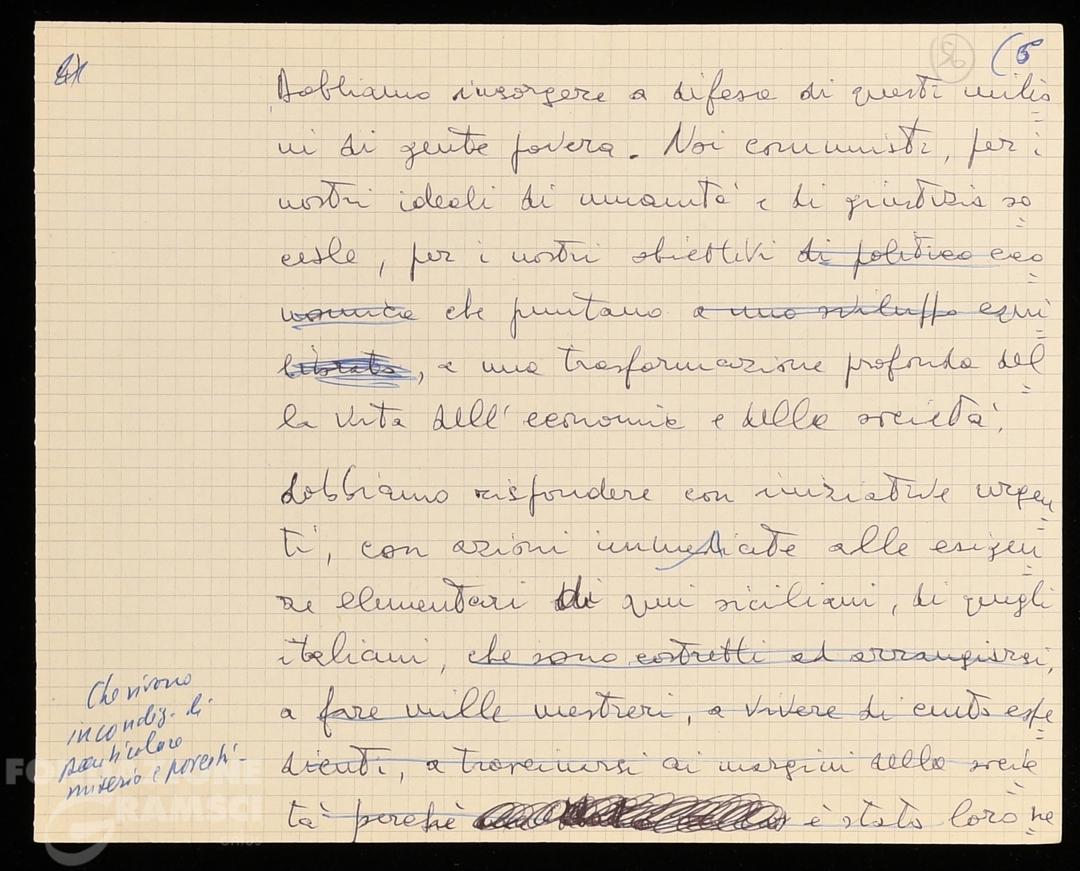 (5
56
Dobbiamo insorgere a difesa di questi milio
ni di gente povera. Noi comunisti, per i
nostri ideali di umanità e di giustizia so
ciale, per i nostri obiettivi di politica eco
nomica che puntano a uno sviluppo equi
librato, a una trasformazione profonda del
la vita dell'economia e della società.
dobbiamo rispondere con iniziative urgen
ti, con azioni immediate alle esigen
ze elementari di quei siciliani, di quegli
italiani, che sono costretti ad arrangiarsi,
a fare mille mestieri, a vivere di cento espe
dienti, a trovarsi ai margini della socie
tà perché è stato loro ne
Che vivono
in condiz. di
particolare
miseria e povertà -
FONDAZIONE
GRAMSCI